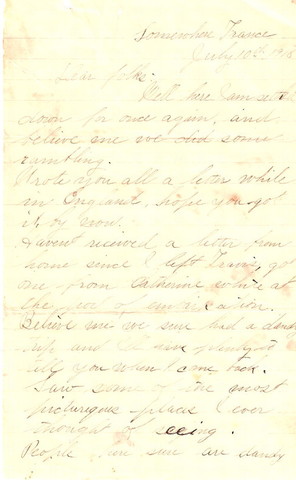 Somewhere France
July 10th 1918
Dear folks:
Well here I am settled
down for once again, and
believe me we did some
rambling.
Wrote you all a letter while
in England, hope you got
it by now.
Haven't received a letter from
home since I left Irwin, got
one from Catherine while at
the port of embarkation.
Believe me we sure had a dandy
trip and I'll have plenty to
tell you when I come back.
Saw some of the most
picturesque places I ever
thought of seeing.
People here sure are dandy